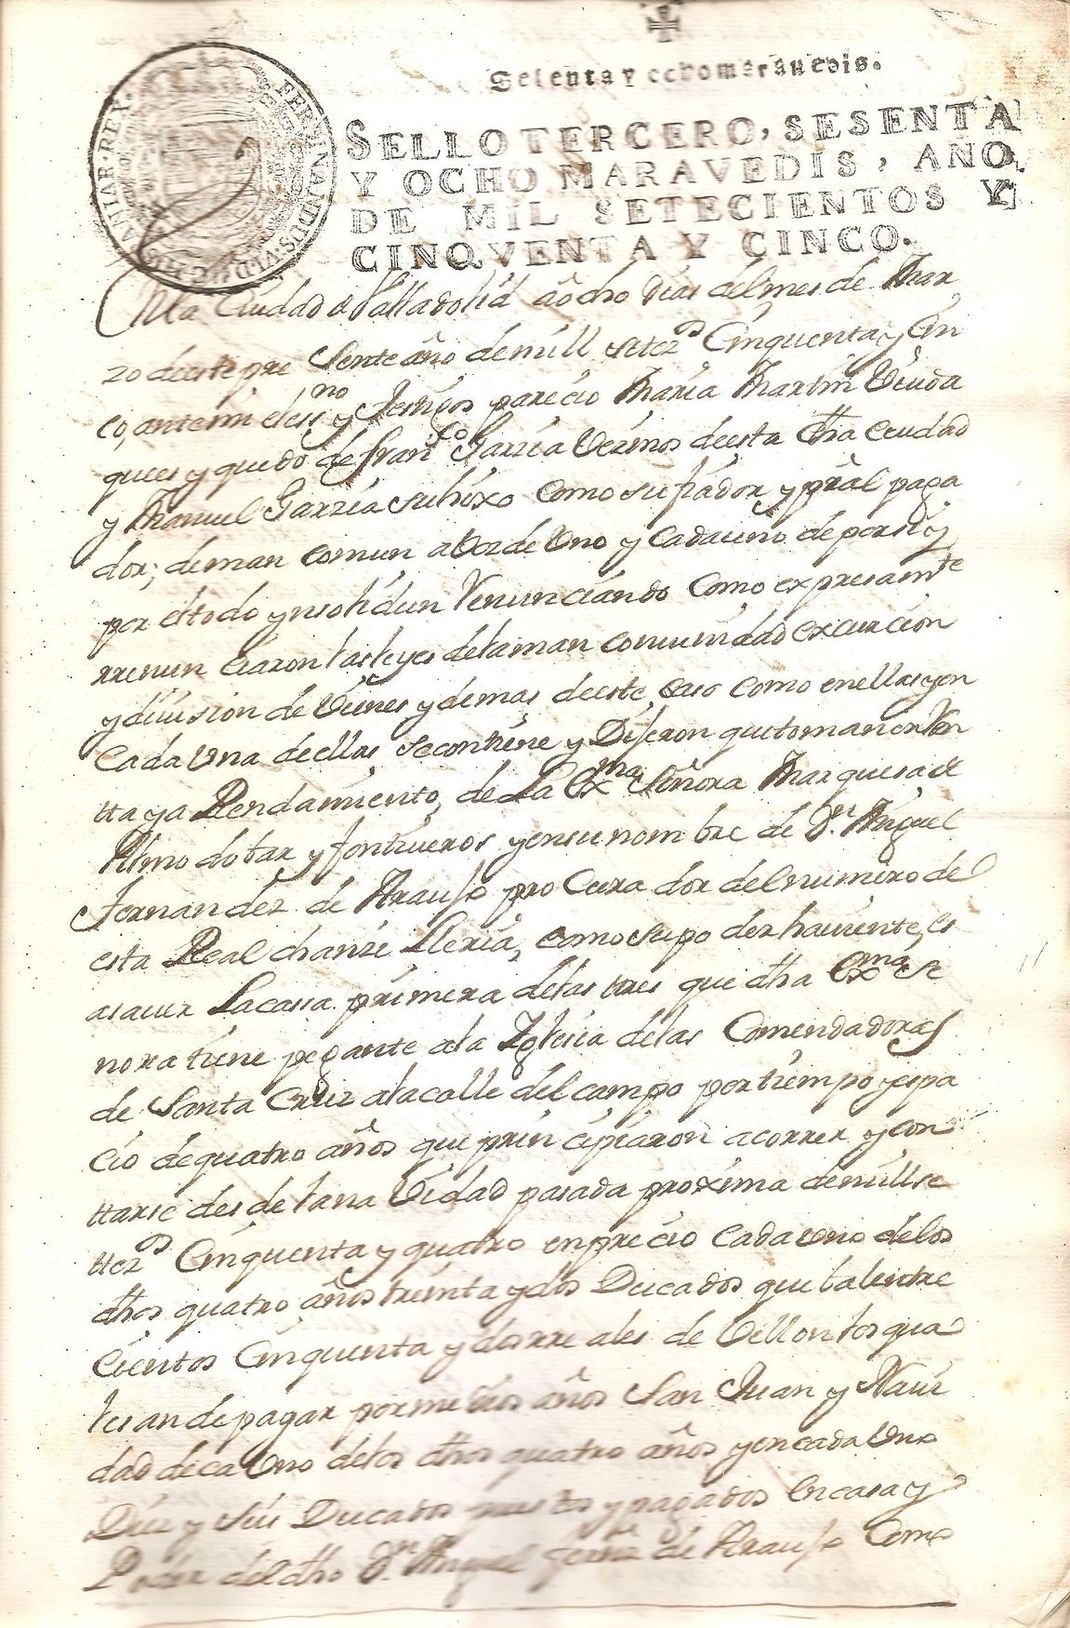 Sesenta y ocho marauedis.
FERDINANDUS·VI·D·G·HISPANIAR·REX·
SELLO TERCERO, SESENTA
Y OCHO MARAVEDIS, AÑO
DE MIL SETECIENTOS Y
CINQVENTA Y CINCO.
Enla Ciudad de Valladolid a ocho dias del mes de Mar
zo de este pre sente año de mill setezos Cinquenta y Cin
co, ante mi el essno y testigos parecio Maria Martin Viuda
que es y quedo de Franco Garzia Vezinos de esta dha Ciudad
y Manuel Garzia su hixo Como su fiador y prâl paga
dor; de man comun a Voz de Vno y Cada uno de por si y
por el todo ynsolidun Renunciando Como expresamte
rrenun ciaron las leyes dela man comunidad excursion
y diuision de Viênes y demas de este Caso Como en ellas y en
Cada Vna de ellas se contiene y Dijeron que toman en Ren
tta y a Rendamiento, de La Exma Señora Marquesa de
Olmo do tar y fontiueros y en su nombre de Dn. Miguel
Fernandez de Araujo pro Cura dor del numero de
esta Real chanzi lleria, como su po der hauiente, es
a sauer La casa primera delas tres que dha Exma Se
ñora tiene pegante ala Yglesia delas Comendadoras
de Santa Cruz ala calle del campo por tiempo y espa
cio de quatro años que prin cipiaron a correr y con
ttarse des de Naui Vidad pasada proxima de mill se
ttezos Cinquenta y quatro en precio Cada uno de los
dhos quatro años treinta y dos Ducados que balen tre
Cientos Cinquenta y dos rre ales de Vellon los qua
les an de pagar por medios años San Juan y Naui
dad de ca Vno delos dhos quatro años y en cada Vno
Diez y seis Ducados puestos y pagados en casa y
Poder del dho Dn. Miguel Fernz de Araujo Como